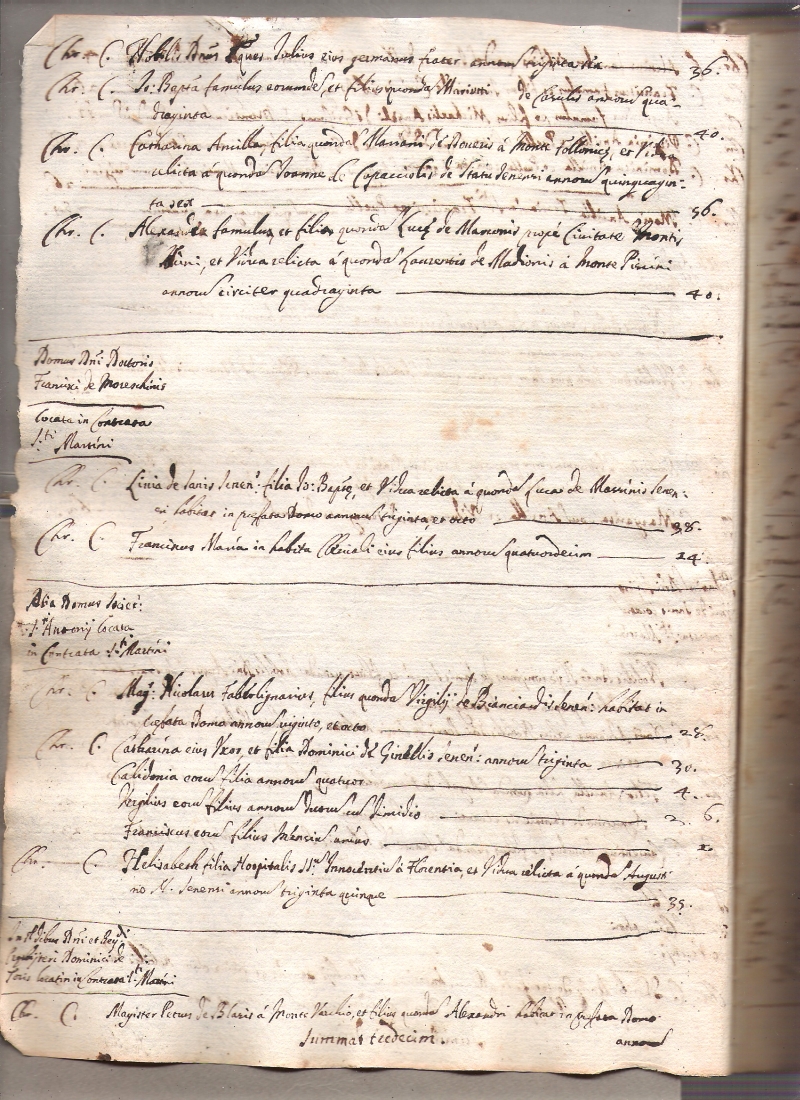 Chr. C. Nobilis Dnus Eques Iulius eius germanus frater annorũ triginta sex 36.
Chr. C. Io: Bapta famulus eorumdẽ, et filius quondã Mariotti de Carulis annorũ qua-
draginta 40.
Chr. C. Catharina Ancilla, filia quondã Mariani de à Monte Follonico, et Vidua
relicta à quondã Ioanne de Capacciolis de Statu Senensi annorũ quinquagin-
ta sex 56.
Chr. C. Alexandra famula, et filia quondã Lucę de Marconis propè Civitatẽ Montis
Ilcini, et Vidua relicta à quondã Laurentio de Madionis à Monte Pisini
annorũ circiter quadraginta 40.
Domus Dni Doctoris
Francisci de Moreschinis
Locata in Contrata
S.ti Martini
Chr. C. Livia de Ianis Senen: filia Io: Baptę, et Vidua relicta à quondã Lucas de Martinis Senen:
si habitat in prefata Domo annorũ triginta et octo 38.
Chr. C. Franciscus Maria in habitu Clericali eius filius annorũ quatuordecim 14.
Alia Domus Societ:
S.ti Antonij Locata
in Contrata S.ti Martini
Chr. C. Mag: Nicolaus Faberlignarius, filius quondã Virgilij de Bianciardis Senen: habitat in
prefata Domo annorũ viginti, et octo 28.
Chr. C. Catharina eius Uxor, et filia Dominici de Ginellis Senen: annorũ triginta 30.
Calidonia eorũ filia annorũ quatuor 4.
Virgilius eorũ filius annorũ duorũ cũ dimidio 2. 6.
Franciscus eorũ filius Mensiũ unius
Chr. C. Helisabeth filia Hospitalis SS. Innocentiũ à Florentia, et Vidua relicta à quondã Augusti
no N. Senensi annorũ triginta quinque 35.
In Ædibus Dni et Rev.di
Presbiteri Dominici de
locatis in Contrata S.ti Martini
Chr. C. Magister Petrus de Blasis à Monte Varchio, et filius quondã Alexandri habitat in prefata Domo
annorũ
Summa tredecim